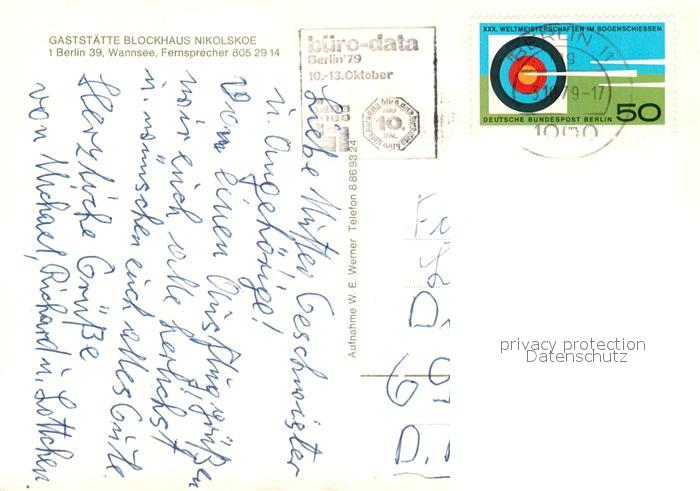 GASTSTÄTTE BLOCKHAUS NIKOLSKOE
1 Berlin 39, Wannsee, Fernsprecher 805 29 14
büro-data
Berlin '79
10.-13. Oktober
10.
XXX. WELTMEISTERSCHAFTEN IM BOGENSCHIESSEN
DEUTSCHE BUNDESPOST BERLIN 50
BERLIN 11
-9-17
1000
Liebe Mutter Geschwister
u. Angehörige!
Von einen Ausflug grüßen
wir euch alle herlichst
u. wünschen euch alles Gute.
Herzliche Grüße
von Michael, Richard u. Lottchen
Aufnahme W. E. Werner Telefon 8 86 93 24
privacy protection
Datenschutz